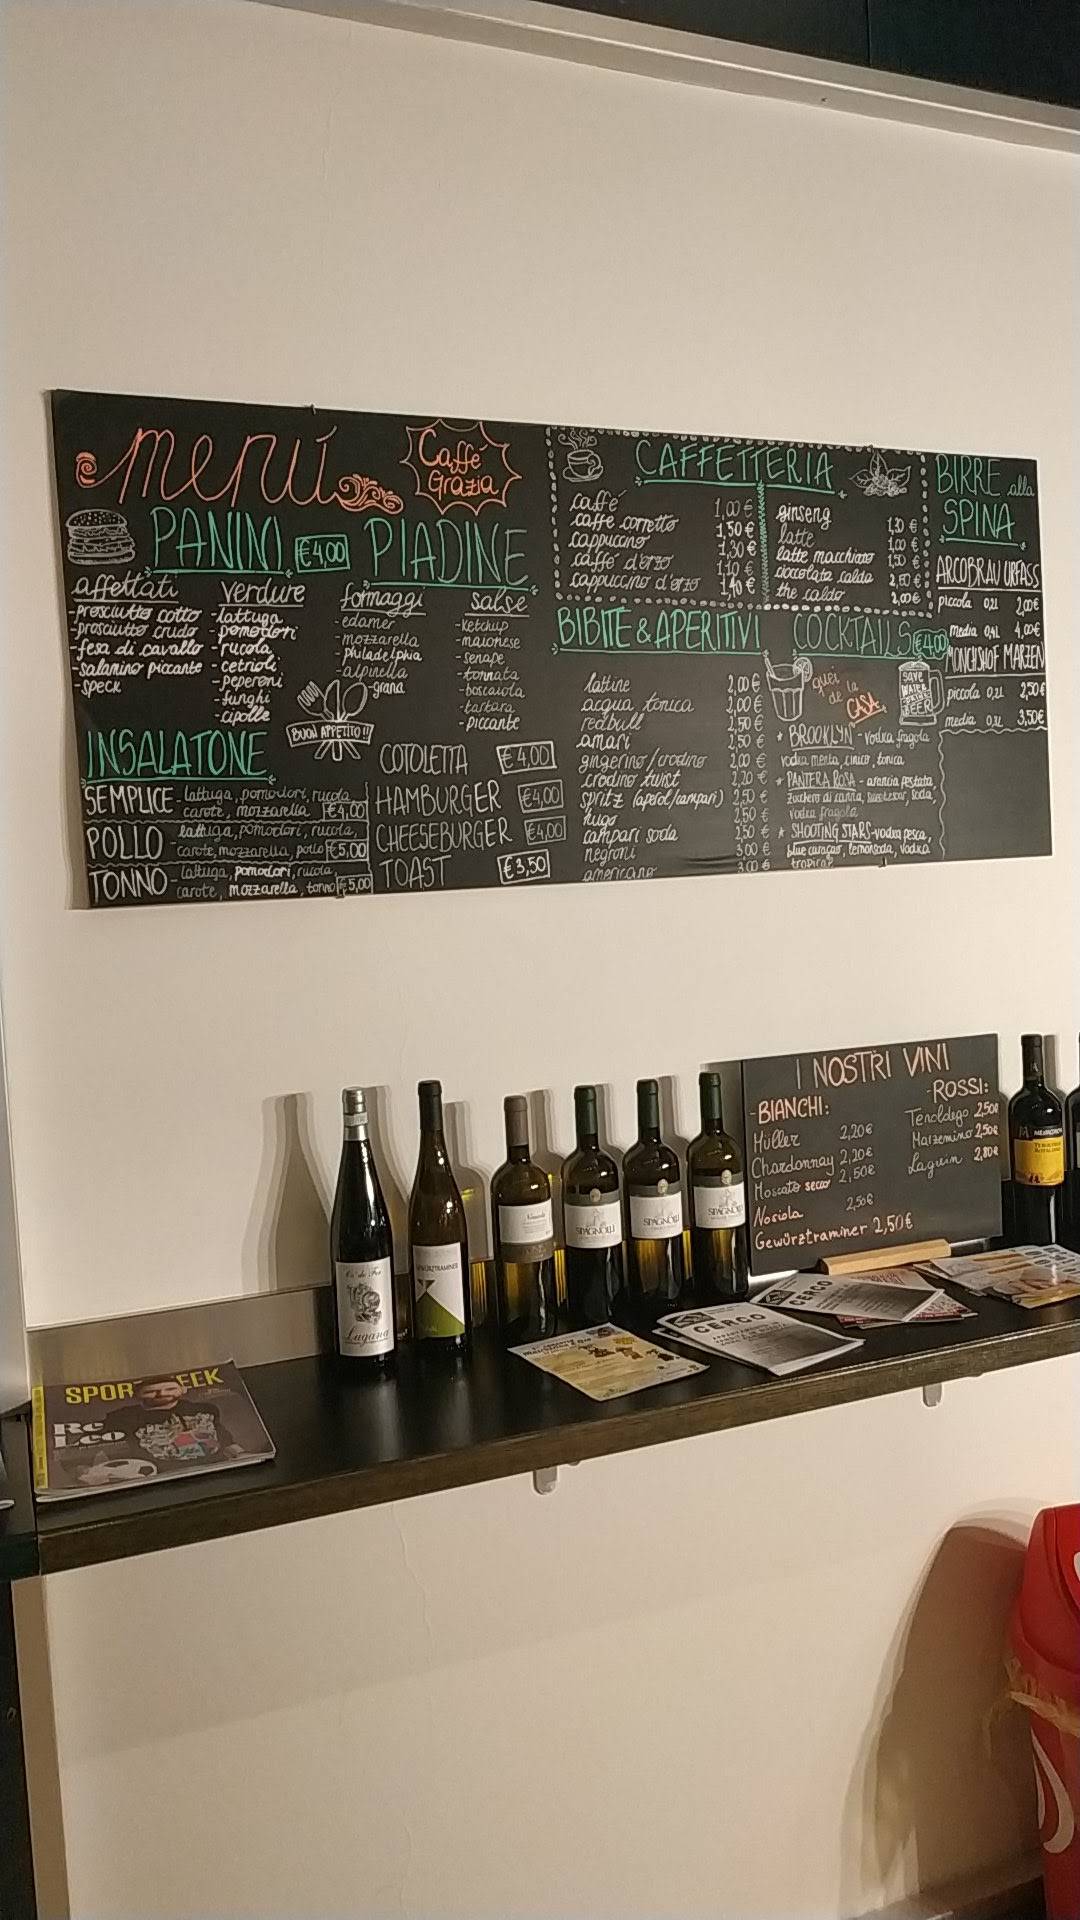 menú
Caffé
Grazia
PANINI €4,00 PIADINE
affettati
-prosciutto cotto
-prosciutto crudo
-fesa di cavallo
-salamino piccante
-speck
verdure
-lattuga
-pomodori
-rucola
-cetrioli
-peperoni
-funghi
-cipolle
formaggi
-edamer
-mozzarella
-philadelphia
-alpinella
-grana
salse
-ketchup
-maionese
-senape
-tonnata
-boscaiola
-tartara
-piccante
BUON APPETITO!!
INSALATONE
SEMPLICE -lattuga, pomodori, rucola,
carote, mozzarella €4,00
POLLO -lattuga, pomodori, rucola,
carote, mozzarella, pollo €5,00
TONNO -lattuga, pomodori, rucola,
carote, mozzarella, tonno €5,00
COTOLETTA €4,00
HAMBURGER €4,00
CHEESEBURGER €4,00
TOAST €3,50
CAFFETTERIA
caffé 1,00€
caffe corretto 1,50€
cappuccino 1,30€
caffé d'orzo 1,10€
cappuccino d'orzo 1,40€
ginseng
latte 1,00€
latte macchiato 1,50€
cioccolata calda 2,50€
the caldo 2,00€
BIBITE & APERITIVI
lattine 2,00€
acqua tonica 2,00€
redbull 2,50€
amari 2,50€
gingerino/crodino 2,00€
crodino twist 2,20€
spritz (aperol/campari) 2,50€
hugo 2,50€
campari soda 2,50€
negroni 3,00€
americano 3,00€
COCKTAILS €4,00
quei
de la
CASA
SAVE
WATER
DRINK
BEER
* BROOKLYN - vodka fragola
vodka menta, cinico, tonica
* PANTERA ROSA - arancia pestata
zucchero di canna, soda,
vodka fragola
* SHOOTING STARS - vodka pesca,
blue curaçao, lemonsoda, vodka
tropical
BIRRE alla
SPINA
ARCOBRAU URFASS
piccola 0,2l 2,00€
media 0,4l 4,00€
MONCHSHOF MARZEN
piccola 0,2l 2,50€
media 0,3l 3,50€
I NOSTRI VINI
-BIANCHI:
Müller 2,20€
Chardonnay 2,20€
Moscato secco 2,50€
Nosiola 2,50€
Gewürztraminer 2,50€
-ROSSI:
Teroldego 2,50€
Marzemino 2,50€
Lagrein 2,80€
Ca' de Fer
Lugana
GEWÜRZTRAMINER
SPAGNOLLI
SPAGNOLLI
SPAGNOLLI
CERCO
CERCO
SPORTWEEK
Re
Leo